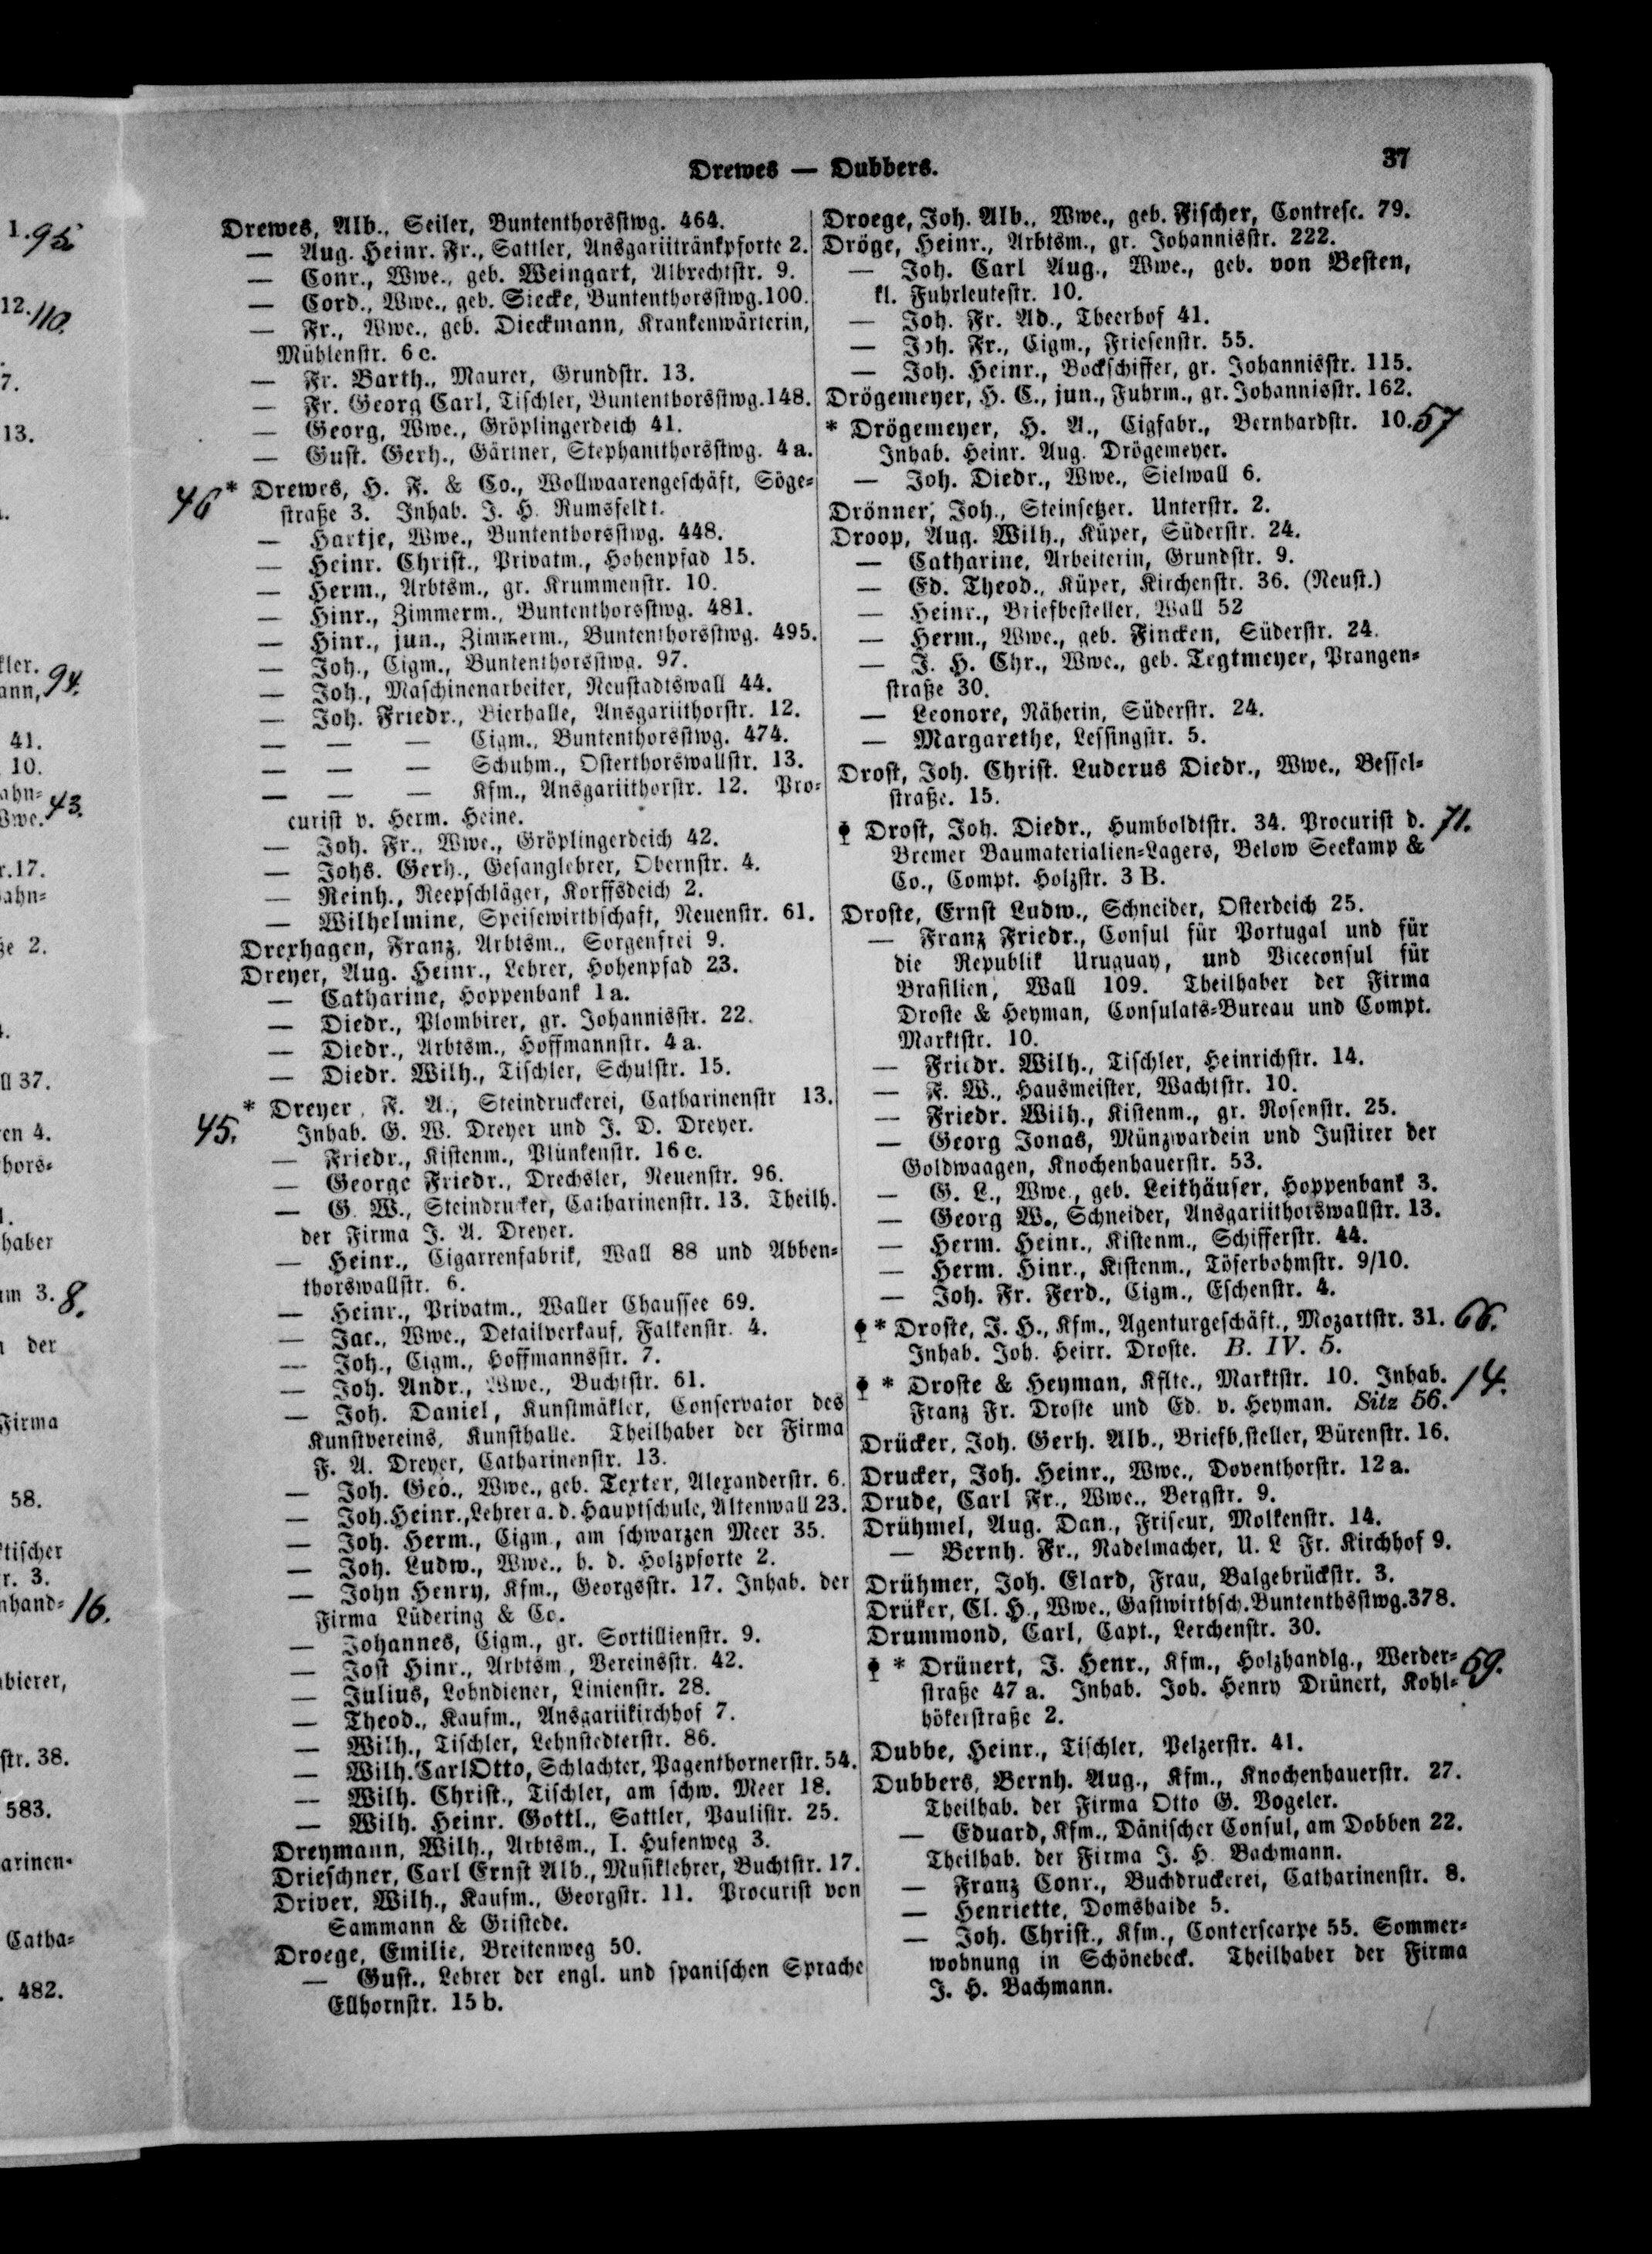 Drewes — Dubbers.
37
Drewes, Alb., Seiler, Buntenthorsstwg. 464.
— Aug. Heinr. Fr., Sattler, Ansgariitränkpforte 2.
— Conr., Wwe., geb. Weingart, Albrechtstr. 9.
— Cord., Wwe., geb. Siecke, Buntenthorsstwg. 100.
— Fr., Wwe., geb. Dieckmann, Krankenwärterin,
Mühlenstr. 6c.
— Fr. Barth., Maurer, Grundstr. 13.
— Fr. Georg Carl, Tischler, Buntenthorsstwg. 148.
— Georg, Wwe., Gröplingerdeich 41.
— Gust. Gerh., Gärtner, Stephanithorsstwg. 4a.
46 * Drewes, H. F. & Co., Wollwaarengeschäft, Söge-
straße 3. Inhab. J. H. Rumsfeldt.
— Hartje, Wwe., Buntenthorsstwg. 448.
— Heinr. Christ., Privatm., Hohenpfad 15.
— Herm., Arbtsm., gr. Krummenstr. 10.
— Hinr., Zimmerm., Buntenthorsstwg. 481.
— Hinr., jun., Zimmerm., Buntenthorsstwg. 495.
— Joh., Cigm., Buntenthorsstwg. 97.
— Joh., Maschinenarbeiter, Neustadtswall 44.
— Joh. Friedr., Bierhalle, Ansgariithorstr. 12.
— — — Cigm., Buntenthorsstwg. 474.
— — — Schuhm., Osterthorswallstr. 13.
— — — Kfm., Ansgariithorstr. 12. Pro-
curist v. Herm. Heine.
— Joh. Fr., Wwe., Gröplingerdeich 42.
— Johs. Gerh., Gesanglehrer, Obernstr. 4.
— Reinh., Reepschläger, Korffsdeich 2.
— Wilhelmine, Speisewirthschaft, Neuenstr. 61.
Drexhagen, Franz, Arbtsm., Sorgenfrei 9.
Dreyer, Aug. Heinr., Lehrer, Hohenpfad 23.
— Catharine, Hoppenbank 1a.
— Diedr., Plombirer, gr. Johannisstr. 22.
— Diedr., Arbtsm., Hoffmannstr. 4a.
— Diedr. Wilh., Tischler, Schulstr. 15.
45. * Dreyer, F. A., Steindruckerei, Catharinenstr 13.
Inhab. G. W. Dreyer und J. D. Dreyer.
— Friedr., Kistenm., Plünkenstr. 16c.
— George Friedr., Drechsler, Neuenstr. 96.
— G. W., Steindrucker, Catharinenstr. 13. Theilh.
der Firma J. A. Dreyer.
— Heinr., Cigarrenfabrik, Wall 88 und Abben-
thorswallstr. 6.
— Heinr., Privatm., Waller Chaussee 69.
— Jac., Wwe., Detailverkauf, Falkenstr. 4.
— Joh., Cigm., Hoffmannsstr. 7.
— Joh. Andr., Wwe., Buchtstr. 61.
— Joh. Daniel, Kunstmäkler, Conservator des
Kunstvereins, Kunsthalle. Theilhaber der Firma
F. A. Dreyer, Catharinenstr. 13.
— Joh. Geo., Wwe., geb. Texter, Alexanderstr. 6.
— Joh. Heinr., Lehrer a. d. Hauptschule, Altenwall 23.
— Joh. Herm., Cigm., am schwarzen Meer 35.
— Joh. Ludw., Wwe., b. d. Holzpforte 2.
— John Henry, Kfm., Georgsstr. 17. Inhab. der
Firma Lüdering & Co.
— Johannes, Cigm., gr. Sortillienstr. 9.
— Jost Hinr., Arbtsm., Vereinsstr. 42.
— Julius, Lohndiener, Linienstr. 28.
— Theod., Kaufm., Ansgariikirchhof 7.
— Wilh., Tischler, Lehnstedterstr. 86.
— Wilh. Carl Otto, Schlachter, Pagenthornerstr. 54.
— Wilh. Christ., Tischler, am schw. Meer 18.
— Wilh. Heinr. Gottl., Sattler, Paulistr. 25.
Dreymann, Wilh., Arbtsm., I. Hufenweg 3.
Drieschner, Carl Ernst Alb., Musiklehrer, Buchtstr. 17.
Driver, Wilh., Kaufm., Georgstr. 11. Procurist von
Sammann & Gristede.
Droege, Emilie, Breitenweg 50.
— Gust., Lehrer der engl. und spanischen Sprache
Ellhornstr. 15b.
Droege, Joh. Alb., Wwe., geb. Fischer, Contresc. 79.
Dröge, Heinr., Arbtsm., gr. Johannisstr. 222.
— Joh. Carl Aug., Wwe., geb. von Besten,
kl. Fuhrleutestr. 10.
— Joh. Fr. Ad., Theerhof 41.
— Joh. Fr., Cigm., Friesenstr. 55.
— Joh. Heinr., Bockschiffer, gr. Johannisstr. 115.
Drögemeyer, H. C., jun., Fuhrm., gr. Johannisstr. 162.
* Drögemeyer, H. A., Cigfabr., Bernhardstr. 10. 57
Inhab. Heinr. Aug. Drögemeyer.
— Joh. Diedr., Wwe., Sielwall 6.
Drönner, Joh., Steinsetzer. Unterstr. 2.
Droop, Aug. Wilh., Küper, Süderstr. 24.
— Catharine, Arbeiterin, Grundstr. 9.
— Ed. Theod., Küper, Kirchenstr. 36. (Neust.)
— Heinr., Briefbesteller, Wall 52
— Herm., Wwe., geb. Fincken, Süderstr. 24.
— J. H. Chr., Wwe., geb. Tegtmeyer, Prangen-
straße 30.
— Leonore, Näherin, Süderstr. 24.
— Margarethe, Lessingstr. 5.
Drost, Joh. Christ. Luderus Diedr., Wwe., Bessel-
straße. 15.
Drost, Joh. Diedr., Humboldtstr. 34. Procurist d. 71.
Bremer Baumaterialien-Lagers, Below Seekamp &
Co., Compt. Holzstr. 3 B.
Droste, Ernst Ludw., Schneider, Osterdeich 25.
— Franz Friedr., Consul für Portugal und für
die Republik Uruguay, und Viceconsul für
Brasilien, Wall 109. Theilhaber der Firma
Droste & Heyman, Consulats-Bureau und Compt.
Marktstr. 10.
— Friedr. Wilh., Tischler, Heinrichstr. 14.
— F. W., Hausmeister, Wachtstr. 10.
— Friedr. Wilh., Kistenm., gr. Rosenstr. 25.
— Georg Jonas, Münzwardein und Justirer der
Goldwaagen, Knochenhauerstr. 53.
— G. L., Wwe., geb. Leithäuser, Hoppenbank 3.
— Georg W., Schneider, Ansgariithorswallstr. 13.
— Herm. Heinr., Kistenm., Schifferstr. 44.
— Herm. Hinr., Kistenm., Töferbohmstr. 9/10.
— Joh. Fr. Ferd., Cigm., Eschenstr. 4.
* Droste, J. H., Kfm., Agenturgeschäft., Mozartstr. 31. 66.
Inhab. Joh. Heirr. Droste. B. IV. 5.
* Droste & Heyman, Kflte., Marktstr. 10. Inhab. 14.
Franz Fr. Droste und Ed. v. Heyman. Sitz 56.
Drücker, Joh. Gerh. Alb., Briefb.steller, Bürenstr. 16.
Drucker, Joh. Heinr., Wwe., Doventhorstr. 12a.
Drude, Carl Fr., Wwe., Bergstr. 9.
Drühmel, Aug. Dan., Friseur, Molkenstr. 14.
— Bernh. Fr., Nadelmacher, U. L Fr. Kirchhof 9.
Drühmer, Joh. Elard, Frau, Balgebrückstr. 3.
Drüker, Cl. H., Wwe., Gastwirthsch. Buntenthsstwg. 378.
Drummond, Carl, Capt., Lerchenstr. 30.
* Drünert, J. Henr., Kfm., Holzhandlg., Werder- 59.
straße 47a. Inhab. Joh. Henry Drünert, Kohl-
hökerstraße 2.
Dubbe, Heinr., Tischler, Pelzerstr. 41.
Dubbers, Bernh. Aug., Kfm., Knochenhauerstr. 27.
Theilhab. der Firma Otto G. Vogeler.
— Eduard, Kfm., Dänischer Consul, am Dobben 22.
Theilhab. der Firma J. H. Bachmann.
— Franz Conr., Buchdruckerei, Catharinenstr. 8.
— Henriette, Domshaide 5.
— Joh. Christ., Kfm., Conterscarpe 55. Sommer-
wohnung in Schönebeck. Theilhaber der Firma
J. H. Bachmann.